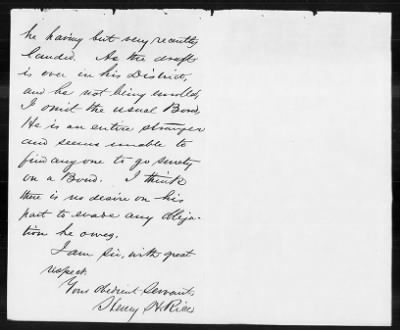 he having but very recently
landed. As the draft
is over in his District,
and he not being enrolled,
I omit the usual Bond.
He is an entire stranger
and seems unable to
find any one to go surety
on a Bond. I think
there is no desire on his
part to evade any obliga-
tion he owes.
I am Sir, with great
respect.
Your obedient Servant,
Henry H.